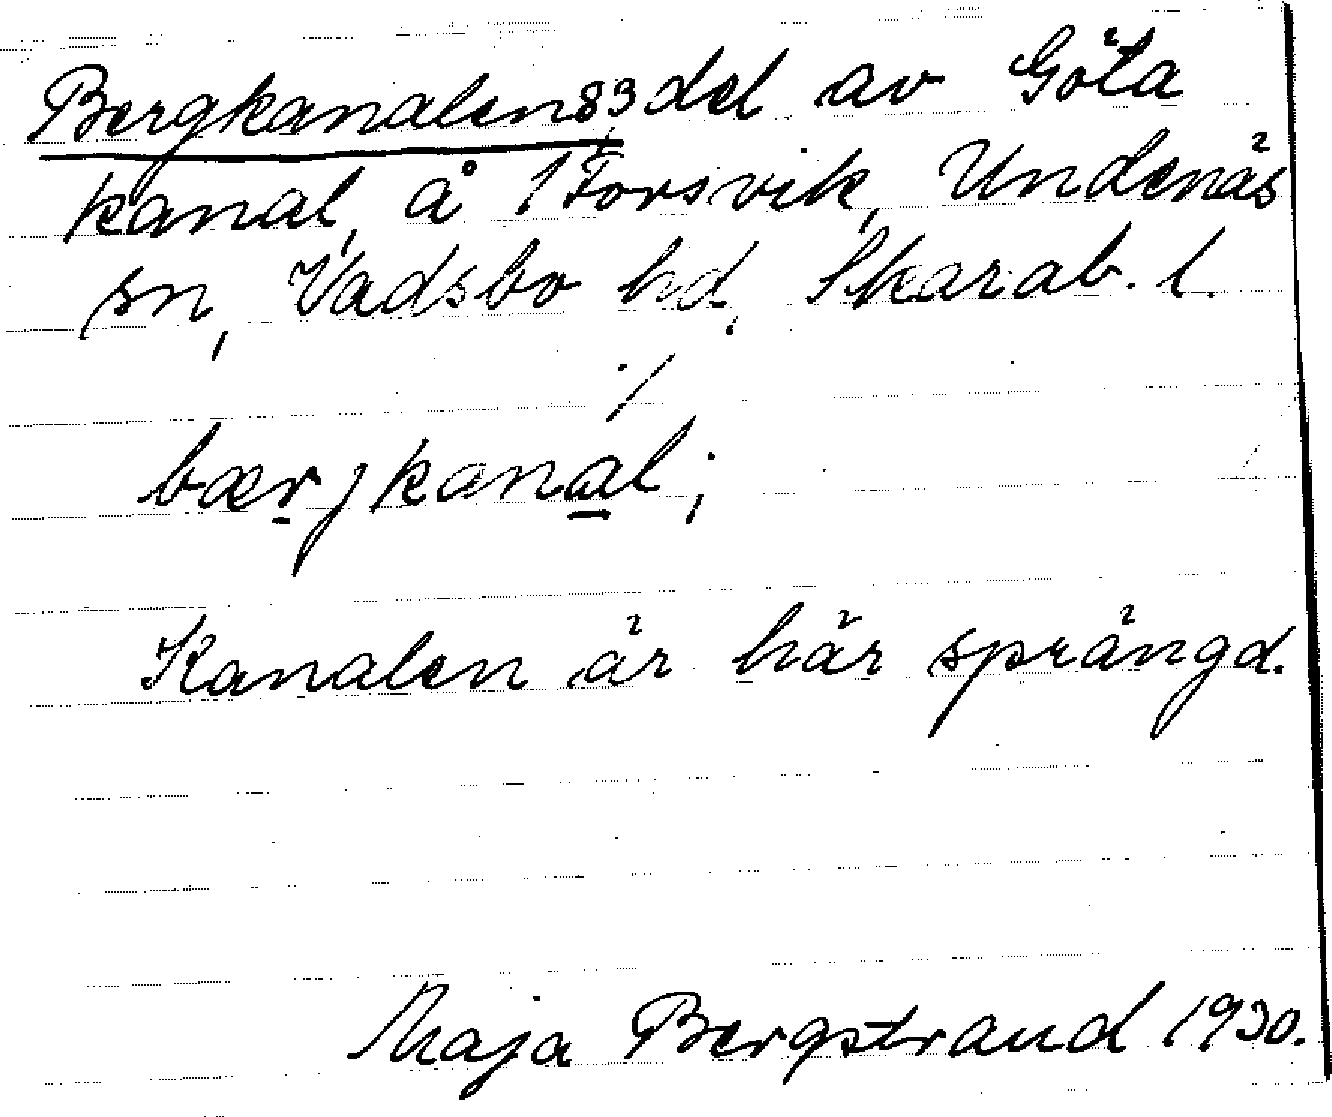 Bergkanalen 83 del av Göta
kanal, å 1 Forsvik, Undenäs
sn, Vadsbo hd, Skarab. l.
./.
bærjkanal;
Kanalen är här sprängd.
Maja Bergstrand 1930.